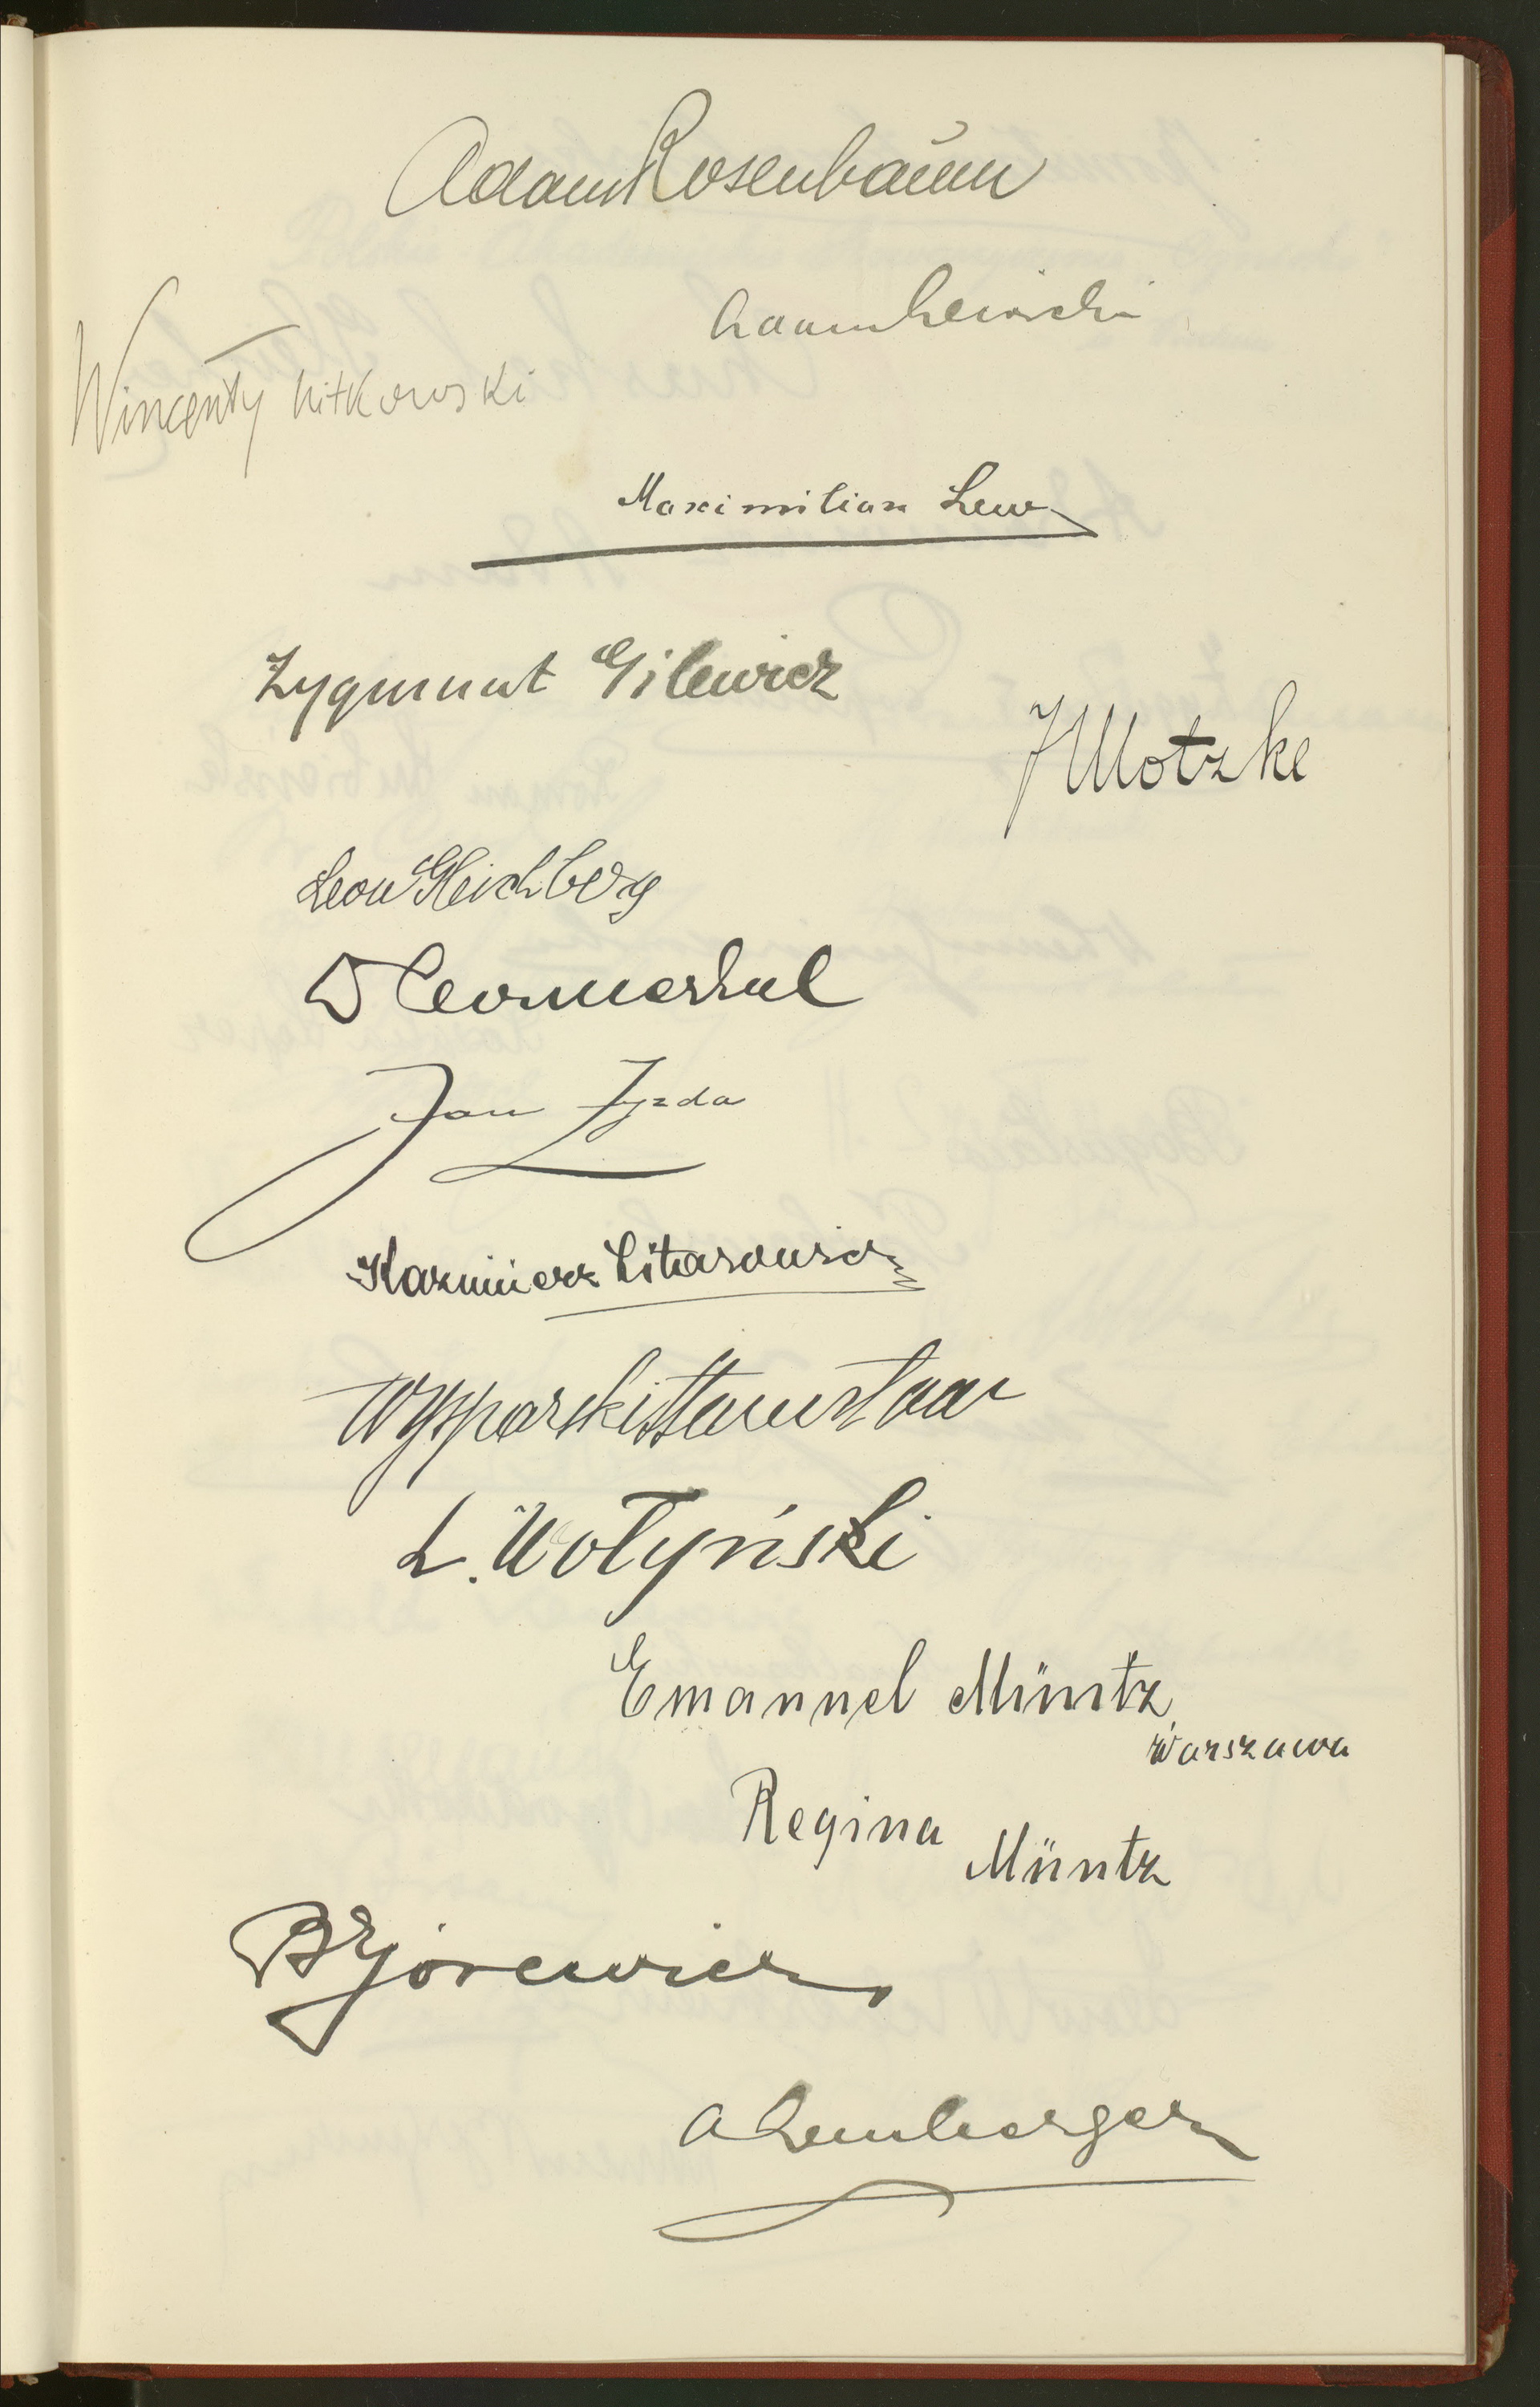 Adam Rosenbaum
Wincenty Witkowski
Maximilian Lew
Zygmunt Gilewicz
J Motzke
Leon Gleichberg
Jan Zyzda
Kazimierz Litarowicz
L. Wołyński
Emanuel Müntz
Warszawa
Regina
Müntz
A Lemberger